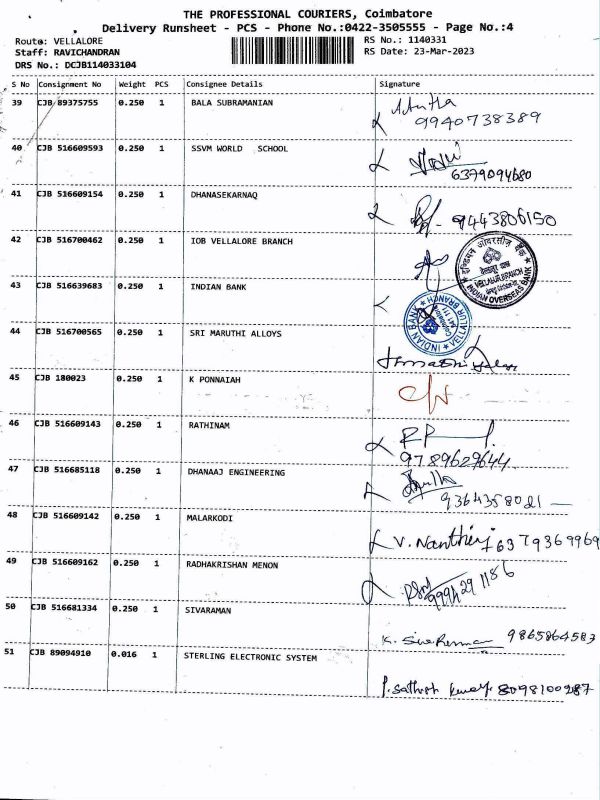 THE PROFESSIONAL COURIERS, Coimbatore
Delivery Runsheet - PCS - Phone No.:0422-3505555 - Page No.:4
Route: VELLALORE RS No.: 1140331
Staff: RAVICHANDRAN RS Date: 23-Mar-2023
DRS No.: DCJB114033104
S No Consignment No Weight PCS Consignee Details Signature
39 CJB 89375755 0.250 1 BALA SUBRAMANIAN
9940738389
40 CJB 516609593 0.250 1 SSVM WORLD SCHOOL
6379094680
41 CJB 516609154 0.250 1 DHANASEKARNAQ
9443806150
42 CJB 516700462 0.250 1 IOB VELLALORE BRANCH
इण्डियन ओवरसीज़ बैंक
VELLALUR BRANCH
INDIAN OVERSEAS BANK
43 CJB 516639683 0.250 1 INDIAN BANK
INDIAN BANK ★ VELLALUR BRANCH ★
44 CJB 516700565 0.250 1 SRI MARUTHI ALLOYS
45 CJB 180023 0.250 1 K PONNAIAH
46 CJB 516609143 0.250 1 RATHINAM
9789629644
47 CJB 516685118 0.250 1 DHANAAJ ENGINEERING
9364358021
48 CJB 516609142 0.250 1 MALARKODI
V. Nanthini 6379369969
49 CJB 516609162 0.250 1 RADHAKRISHAN MENON
9994291186
50 CJB 516681334 0.250 1 SIVARAMAN
K. Sivaraman 9865864583
51 CJB 89094910 0.016 1 STERLING ELECTRONIC SYSTEM
P. Sathish Kumar 8098100287